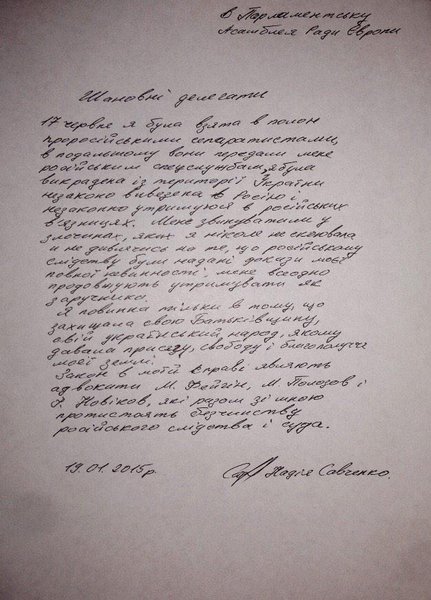 В Парламентську
Асамблея Ради Європи
Шановні делегати
17 червня я була взята в полон
проросійськими сепаратистами,
в подальшому вони передали мене
російським спецслужбам, я була
викрадена із території України
незаконо вивезена в Росію і
незаконно утримуюся в російських
в'язницях. Мене звинуватили у
злочинах, яких я ніколи не скоювала
и не дивлячись на те, що російському
слідству були надані докази моєї
повної невинності мене всеодно
продовжують утримувати як
заручника.
Я повинна тільки в тому, що
захищала свою Батьківщину,
свій український народ, якому
давала присягу, свободу і благополуччя
моєї землі.
Закон в моїй справі являють
адвокати М. Фейгін, М. Полозов і
І. Новіков, які разом зі мною
протистоять безчинству
російського слідства і суда.
19.01.2015р. Надія Савченко.